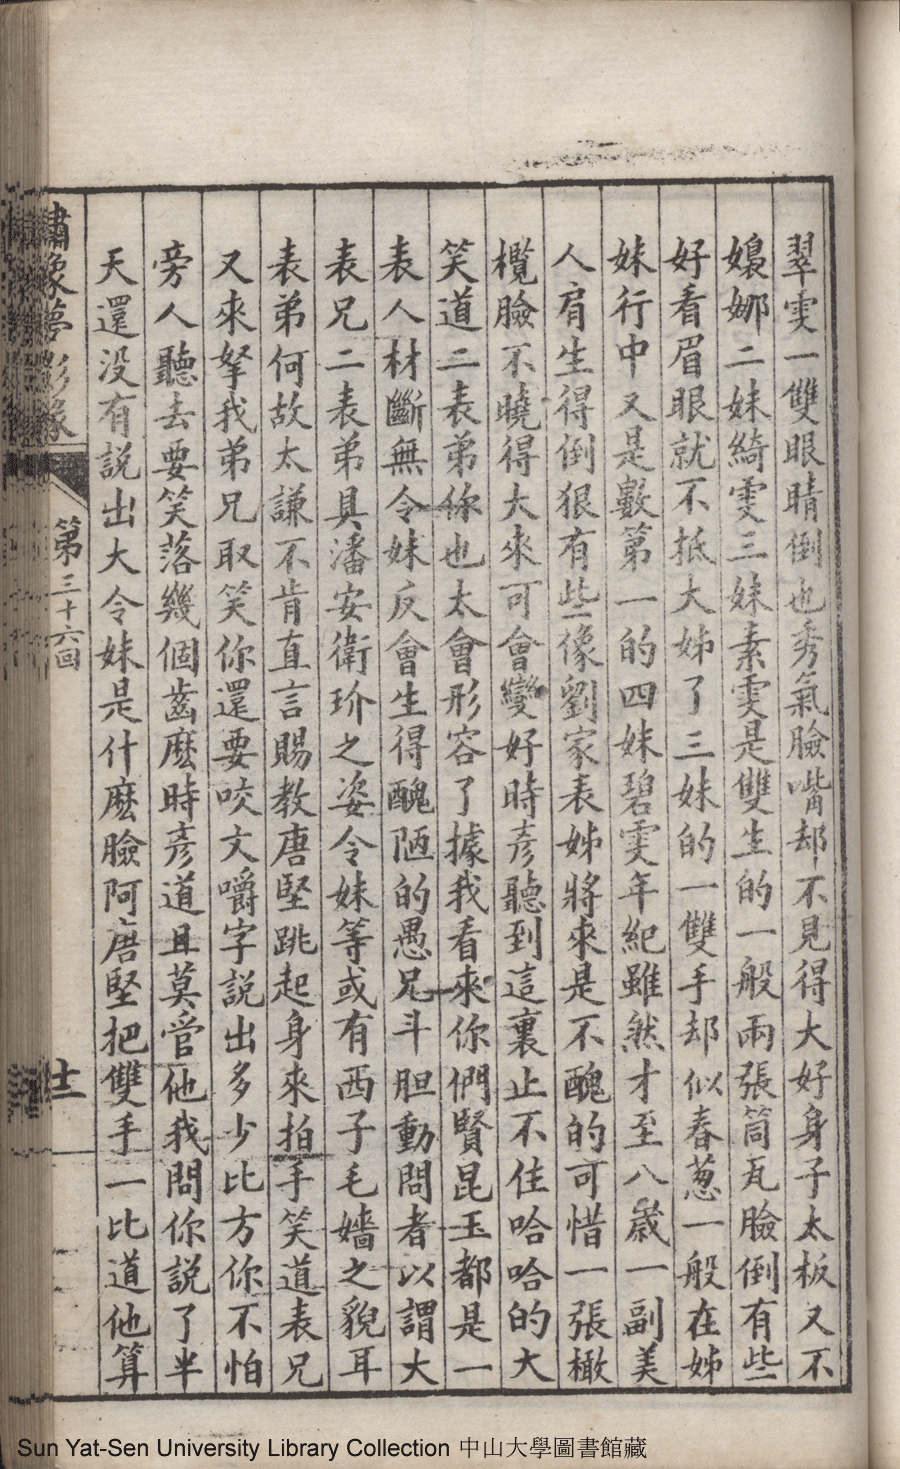 翠雯一雙眼睛倒也秀氣臉嘴却不見得大好身子太板又不
嬝娜二妹綺雯三妹素雯是雙生的一般兩張筒瓦臉倒有些
好看眉眼就不抵大姊了三妹的一雙手却似春葱一般在姊
妹行中又是數第一的四妹碧雯年紀雖然才至八歲一副美
人肩生得倒狠有些像劉家表姊將來是不醜的可惜一張橄
欖臉不曉得大來可會變好時彥聽到這裏止不住哈哈的大
笑道二表弟你也太會形容了據我看來你們賢昆玉都是一
表人材斷無令妹反會生得醜陋的愚兄斗胆動問者以謂大
表兄二表弟具潘安衛玠之姿令妹等或有西子毛嬙之貌耳
表弟何故太謙不肯直言賜教唐堅跳起身來拍手笑道表兄
又來拏我弟兄取笑你還要咬文嚼字説出多少比方你不怕
旁人聽去要笑落幾個齒麽時彥道且莫管他我問你説了半
天還没有説出大令妹是什麽臉阿唐堅把雙手一比道他算
繡像夢影緣
第三十六回
十二
Sun Yat-Sen University Library Collection 中山大學圖書館藏